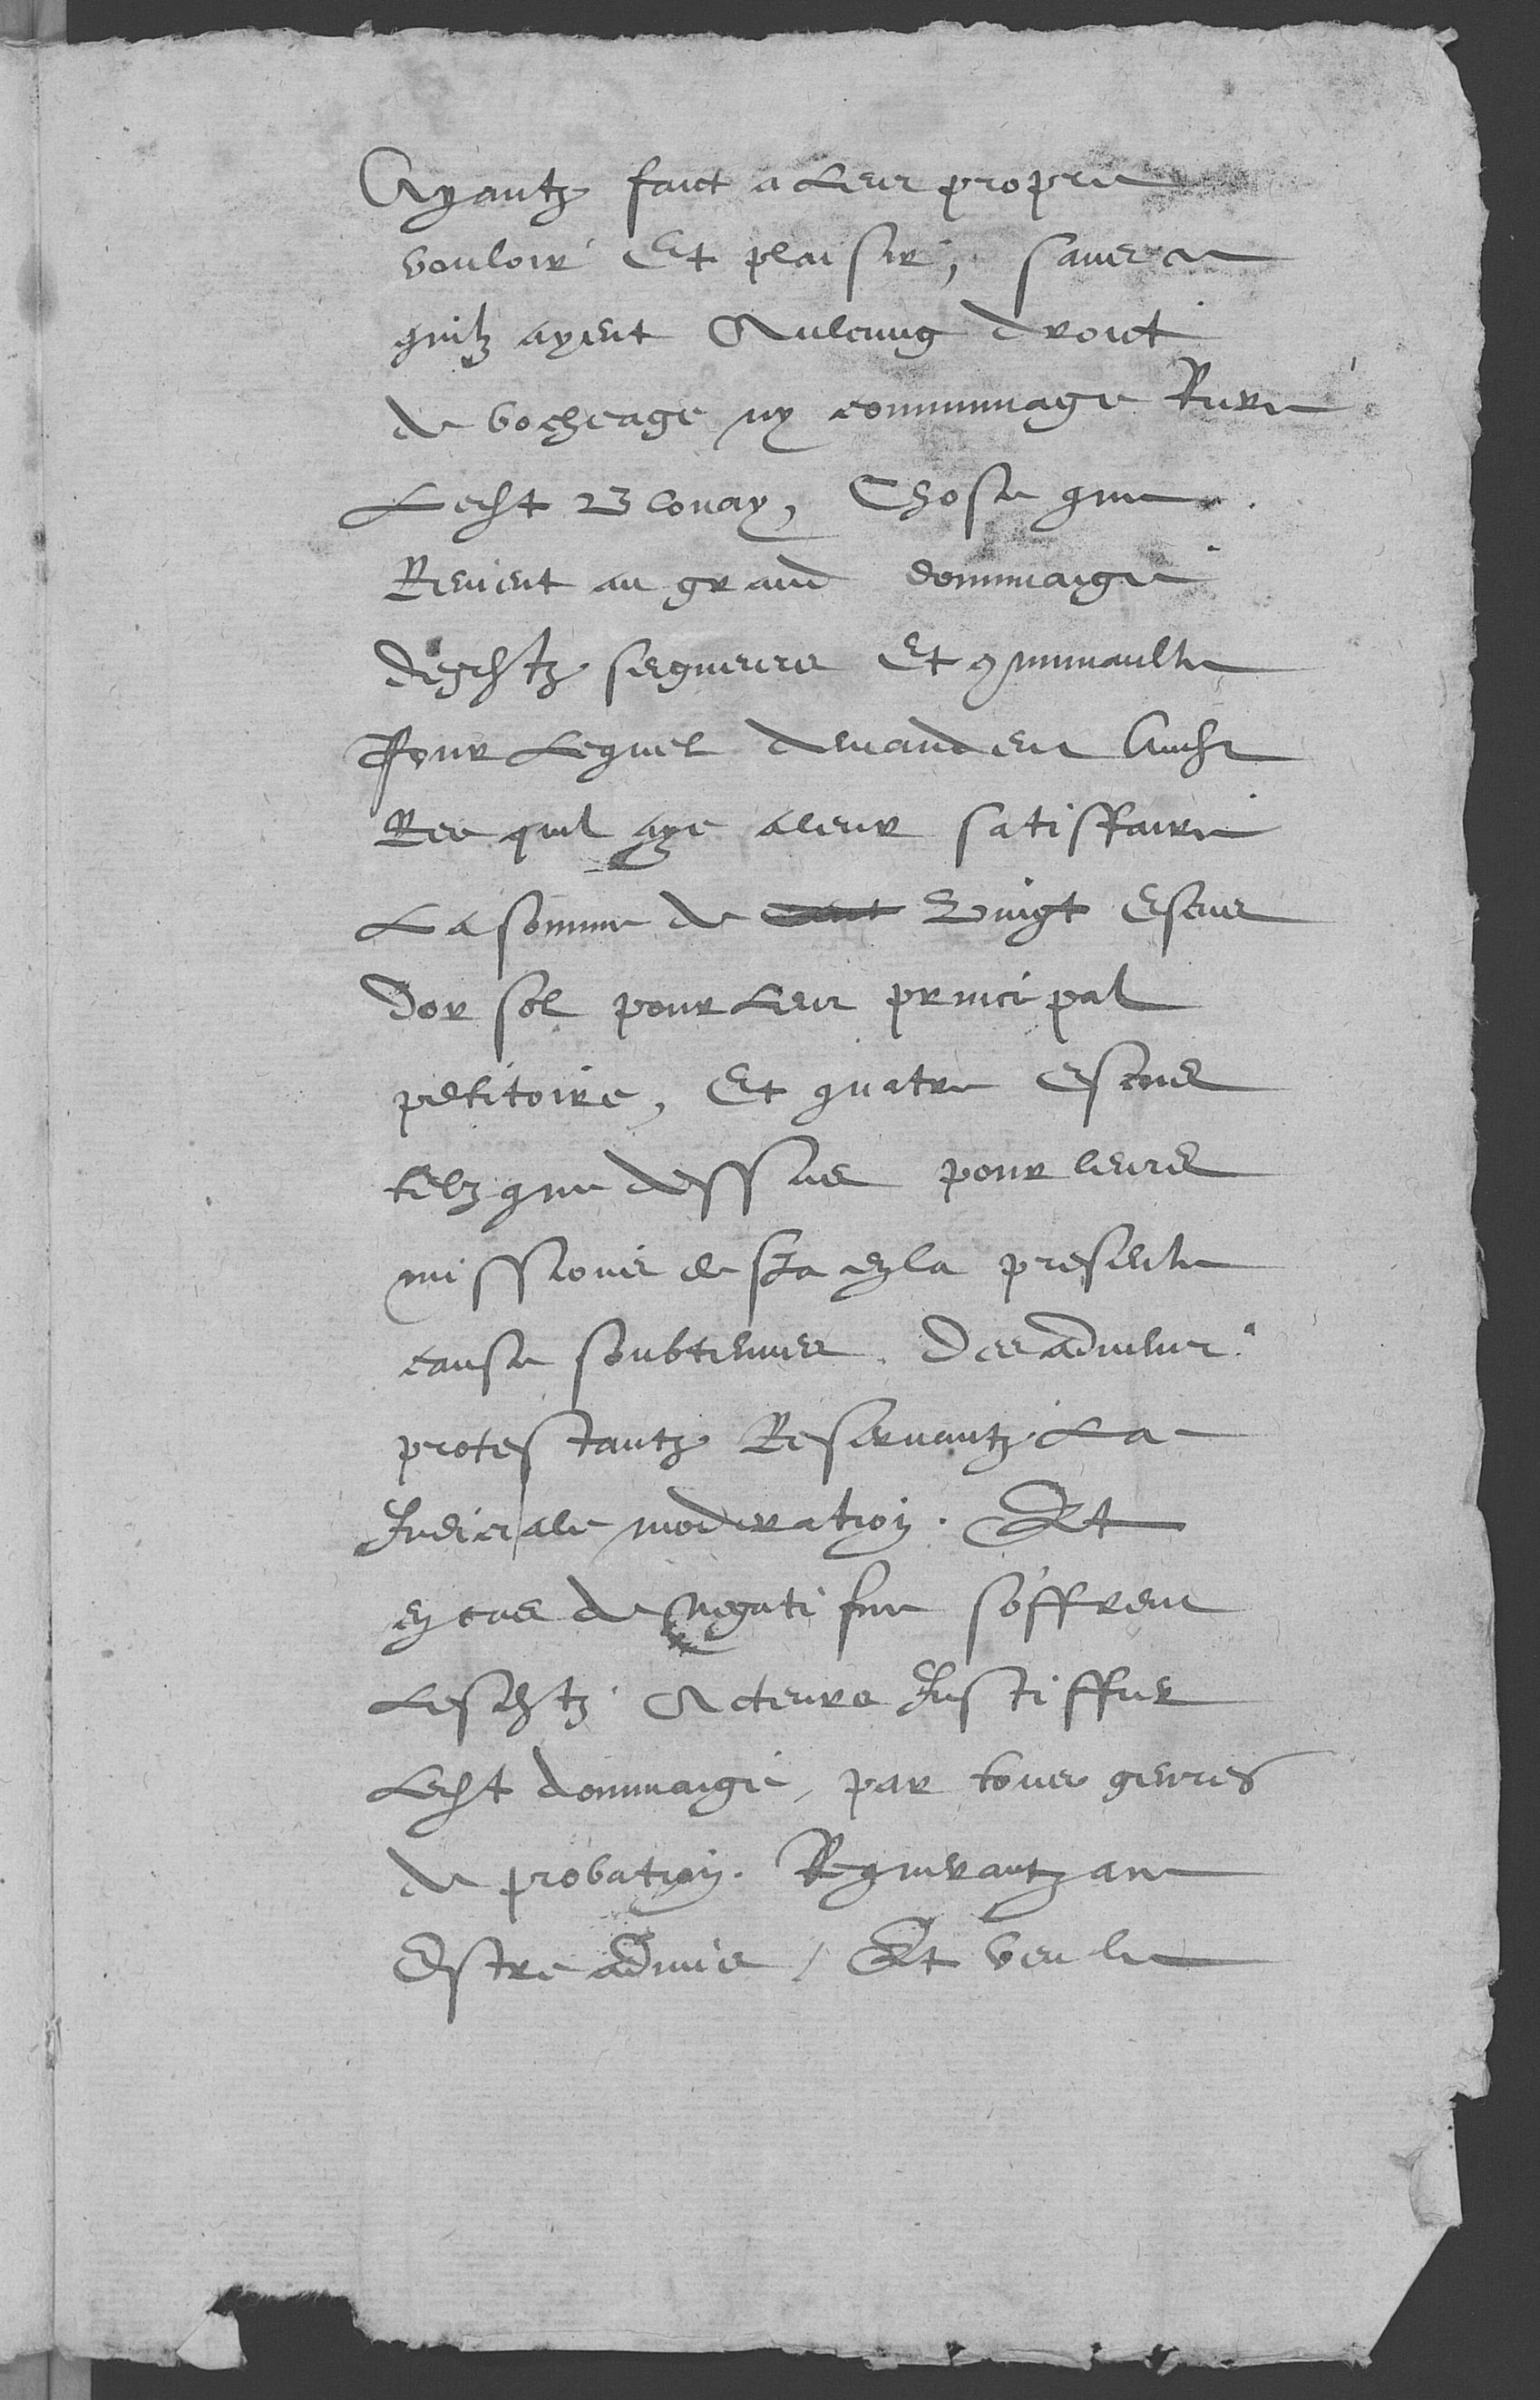 Ayantz faict a leur propre
vouloir Et plaisir, sans ce
quilz ayent Aulcung droict
de bocheage ny communage Riere
Ledit Blonay, Chose que
Revient au grand dommaige
desditz seigneurs Et communaulte
Pour Lequel demandent Audit
Ree quil aye aleur satisffaire
La somme de cent Vingt Escus
Dor sol pour Leur principal
petitoire, Et quatre Escus
telz que dessus pour leurs
missions de sta en la presente
cause soubtenues. Des advenir
protestantz Reservantz La
Judiciale moderation. Et
en cas de Negatifve soffrent
Lesditz Acteurs Justiffier
Ledit dommaige, par tous genres
de probation. Requerantz a ce
Estre admis / Et veu le